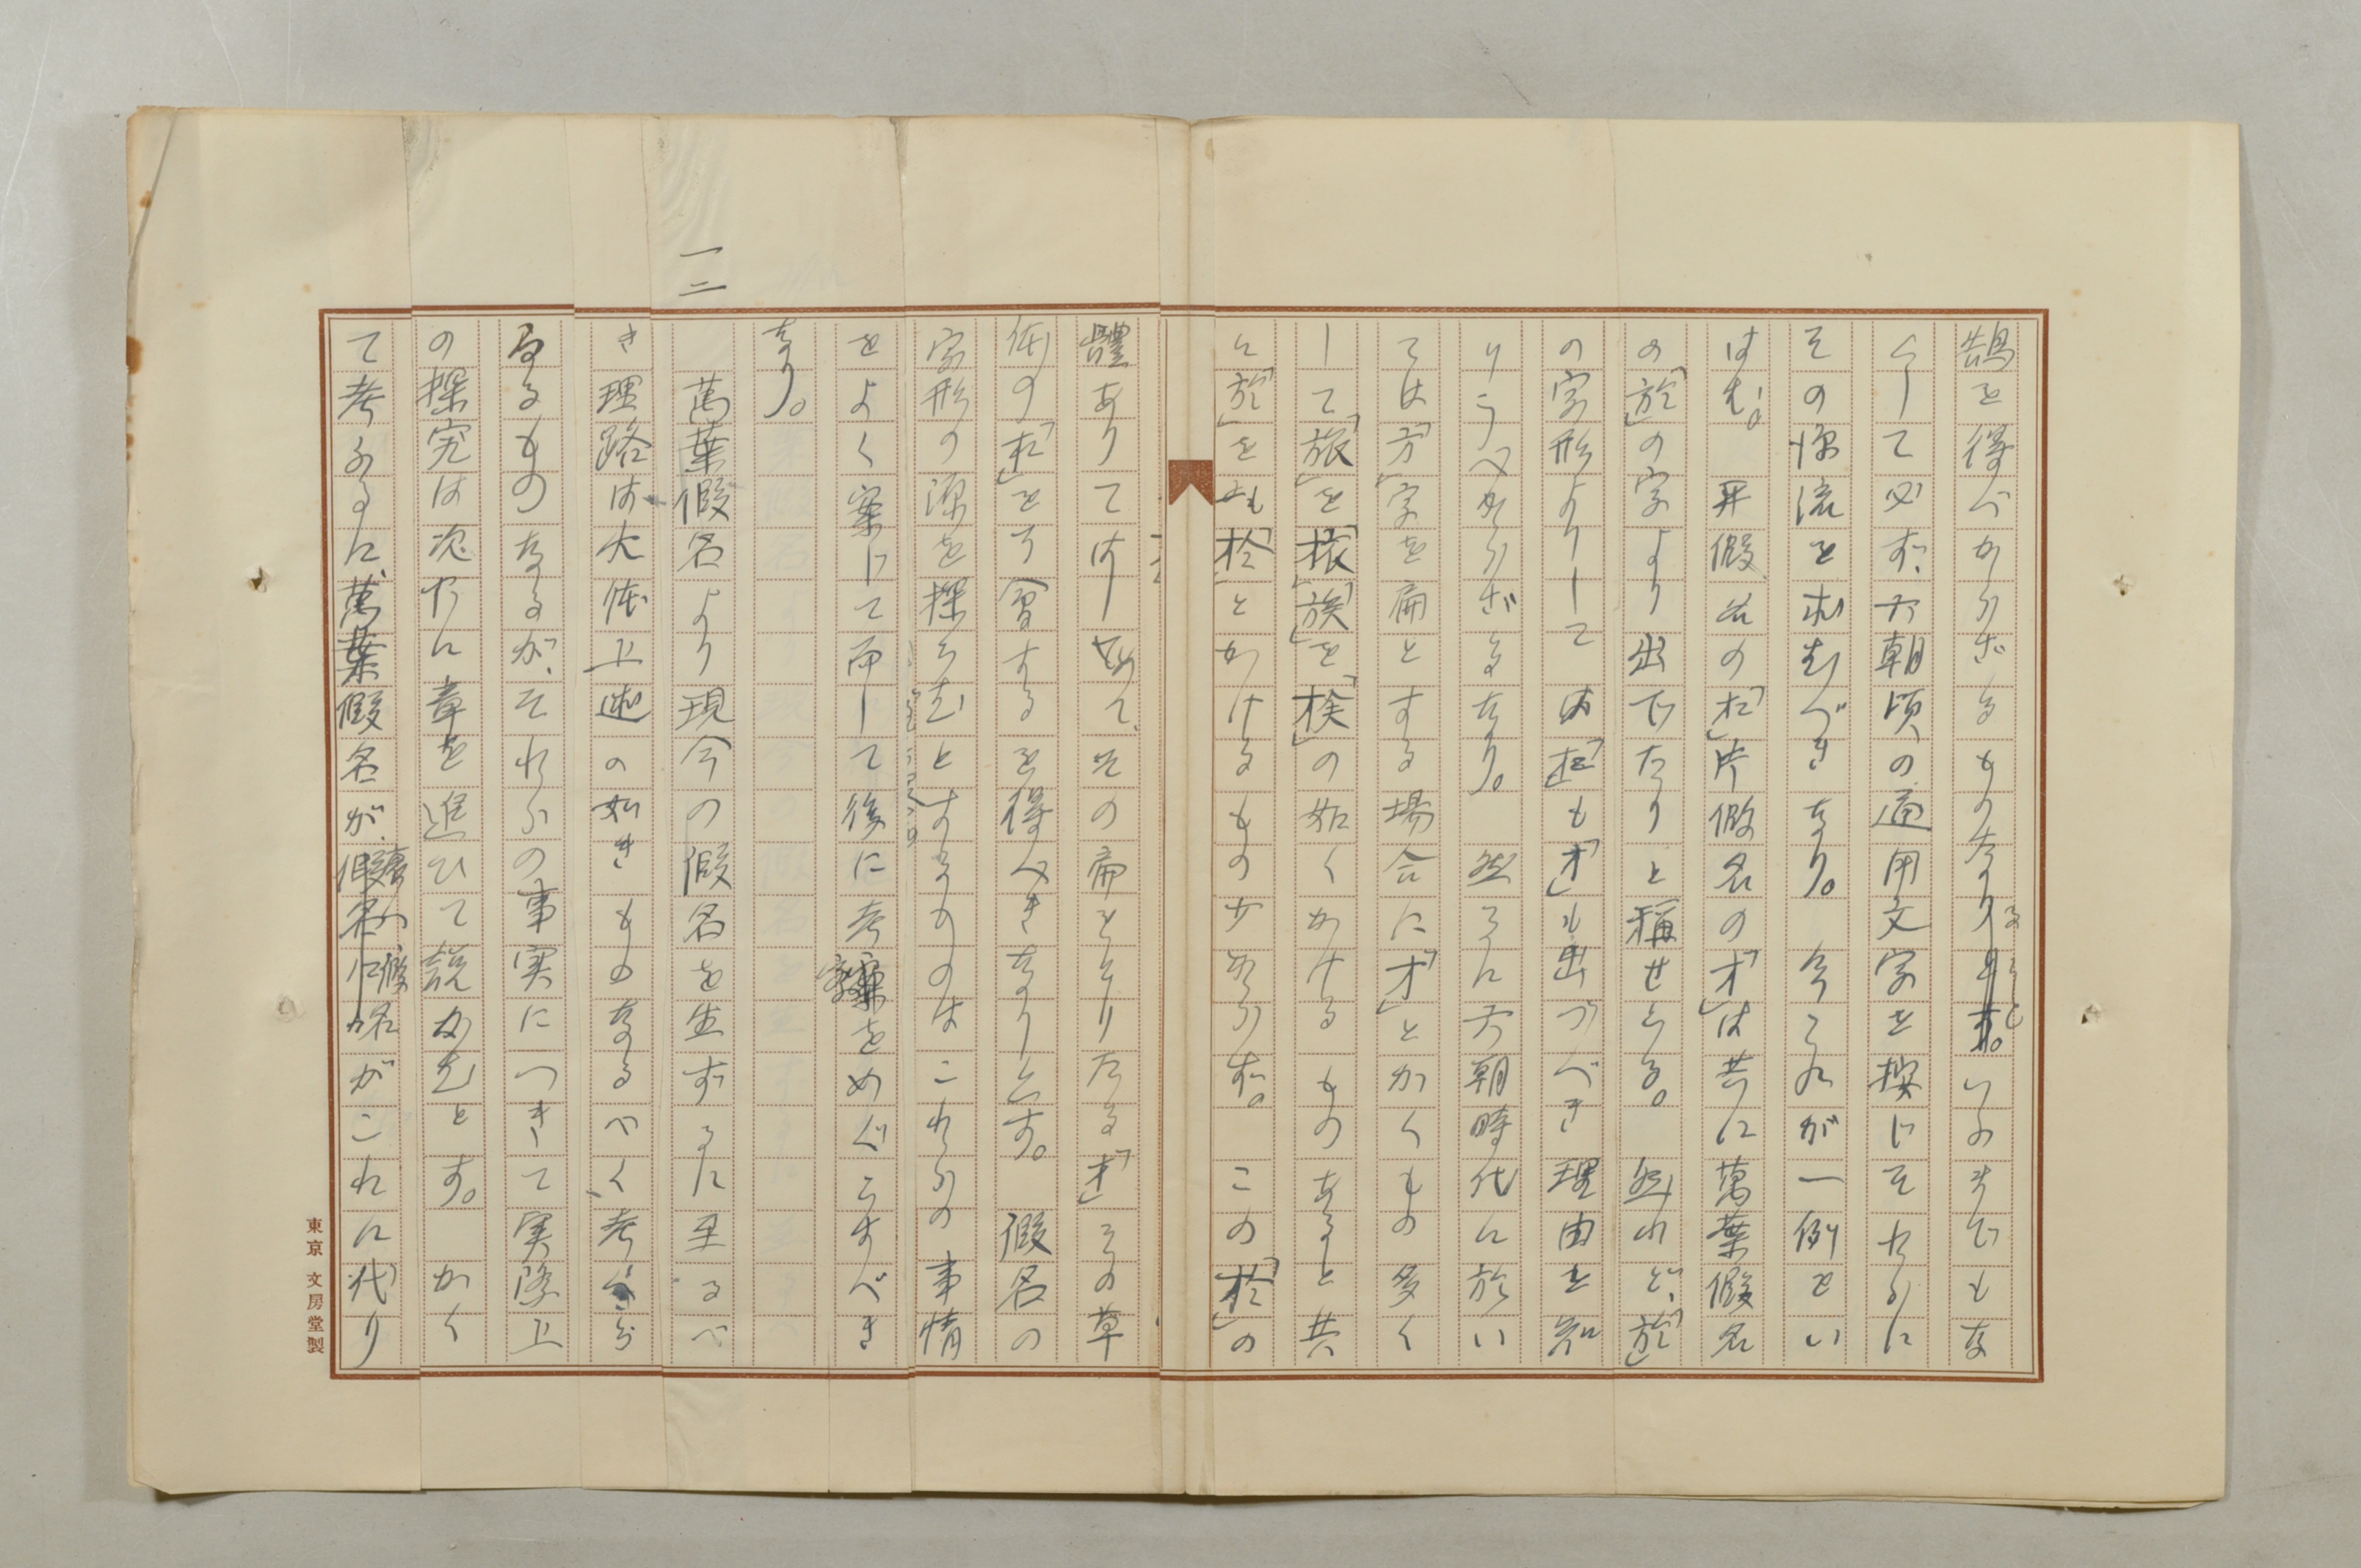 鵠を得べからざるものなり。いふまでもな
くして必ず、六朝頃の通用文字を探じそれらに
その源流を求むべきなり。今これが一例をい
はむ。平假名の「お」片假名の「オ」は共に萬葉假名
の「於」の字より出でたりと稱せらる。然れど、「於」
の字形よりしては「お」も「オ」も出づべき理由を知
りうべからざるなり。然るに六朝時代に於い
ては「方」字を扁とする場合に「才」とかくもの多く
して「旅」を「挔」「族」を「挨」の如くかけるものあると共
に「於」をも「扵」とかけるもの少からず。この「扵」の
體ありてはじめて、その扁をとりたる「オ」その草
体の「お」をう會するを得べきなりとす。假名の
字形の源を探らむとするものはこれらの事情
をよく案じて而して後に考案をめぐらすべき
なり。
一二
萬葉假名より現今の假名を生ずるに至るべ
き理路は大体上述の如きものなるべく、考へら
るるものなるが、それらの事実につきて実際上
の探究は次々に章を逐ひて説かむとす。かく
て考ふるに、萬葉假名が、假名がこれに代り
東京 文房堂製